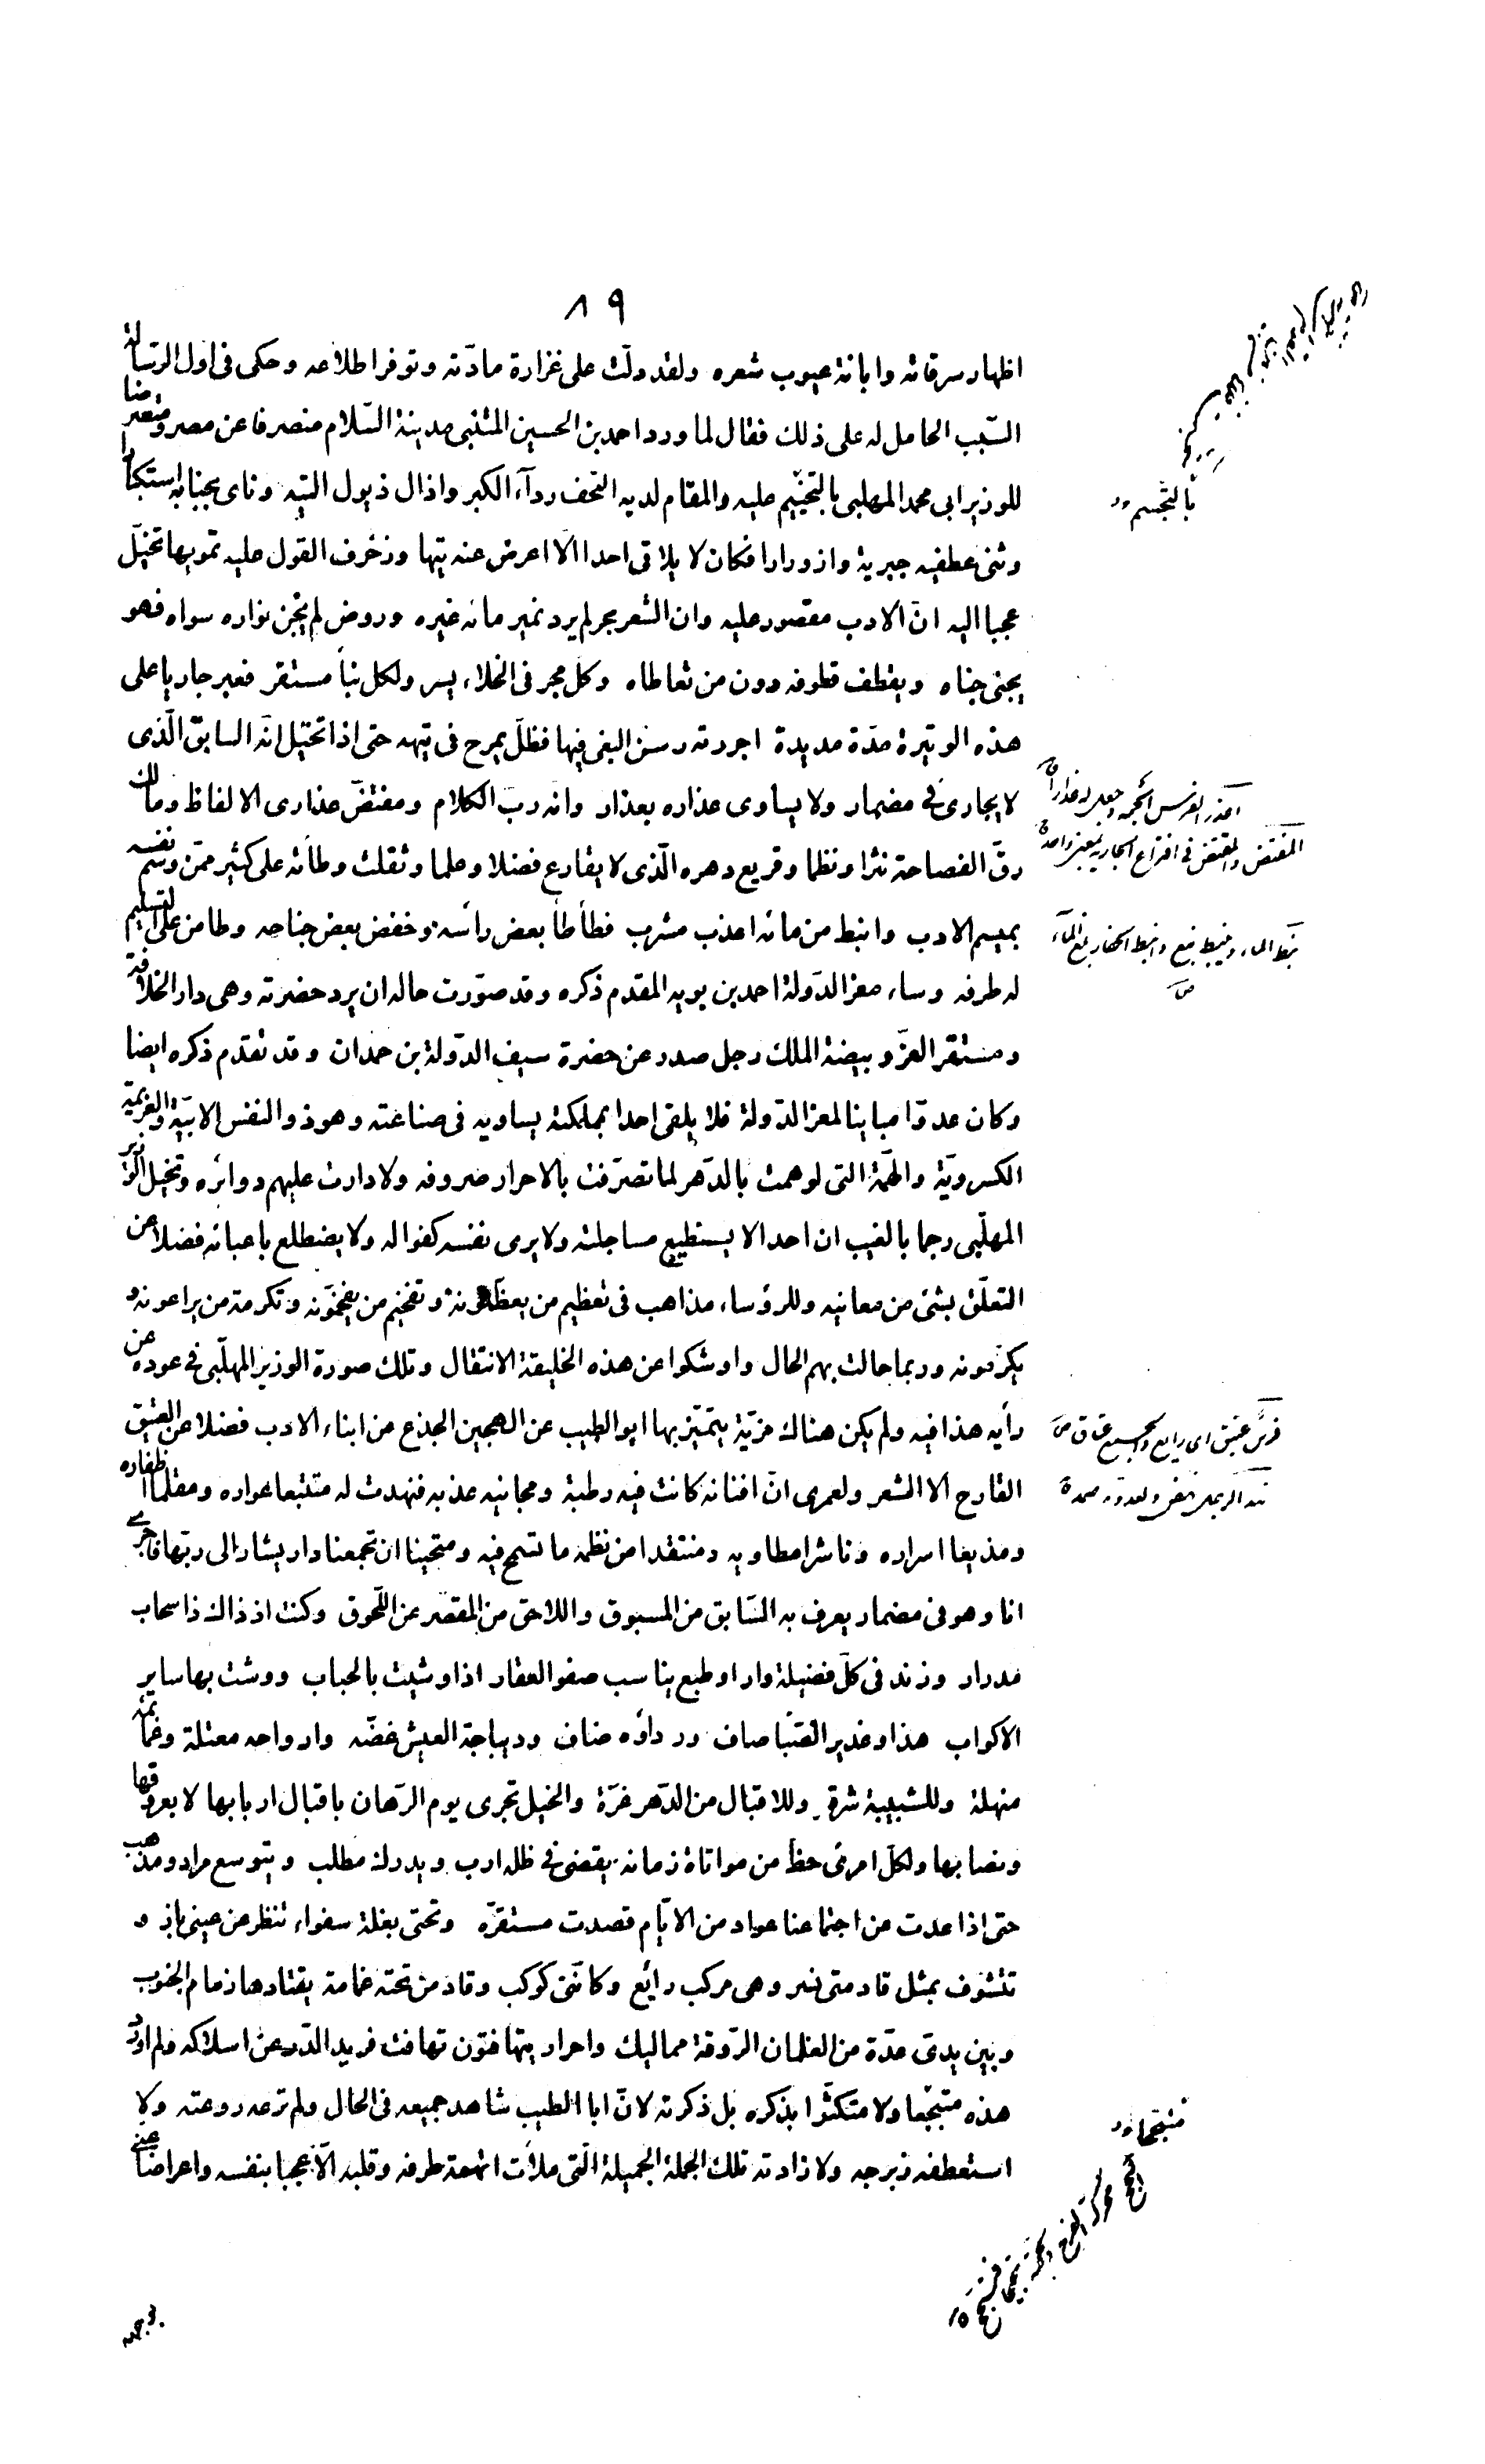 ٨٩
اظهار سرقاته وابانة عيوب شعره ولقد دلّت على غزارة مادّته وتوفر اطلاعه وحكى فى اول الرسالة
السّبب الحامل له على ذلك فقال لما ورد احمد بن الحسين المتنبى مدينة السّلام منصرفا عن مصر ومتعرضا
للوزير ابى محمد المهلبى بالتخييم عليه والمقام لديه التحف ردآء الكبر واذال ذيول التيه وناى بجنابه استكبارا
وثنى عطفيه جبرية وازورارا فكان لا يلاقى احدا الا اعرض عنه تيها وزخرف القول عليه تمويها تخيّل
عجبا اليه انّ الادب مقصور عليه وان الشعر بحر لم يرد نمير مائه غيره وروض لم يجن نواره سواه فهو
يجنى جناه ويقطف قطوفه دون من تعاطاه وكل مجر فى الخلاء يسر ولكل نبأ مستقر فعبر جاريا على
هذه الوتيرة مدّة مديدة اجررته رسن البغى فيها فظلّ يمرح فى تيهه حتى اذا تخيّل انّه السابق الّذى
لا يجارى فى مضمار ولا يساوى عذاره بعذار وانه ربّ الكلام ومفتضّ عذارى الالفاظ ومالك
رقّ الفصاحة نثرا ونظما وقريع دهره الّذى لا يقارع فضلا وعلما وثقلت وطأته على كثير ممّن وسم نفسه
بميسم الادب وانبط من مائه اعذب مشرب فطأطأ بعض رأسه وخفض بعض جناحه وطامن على التسليم
له طرفه وساء معز الدّولة احمد بن بويه المقدم ذكره وقد صوّرت حاله ان يرد حضرته وهى دار الخلافة
ومستقر العزّ وبيضة الملك رجل صدر عن حضرة سيف الدّولة بن حمدان وقد تقدم ذكره ايضا
وكان عدوّا مباينا لمعز الدّولة فلا يلقى احدا بمملكته يساويه فى صناعته وهو ذو النفس الابيّة والعزيمة
الكسرويّة والهمّة التى لو همت بالدّهر لما تصرّفت بالاحرار صروفه ولا دارت عليهم دوائره وتخيل الوزير
المهلّبى رجما بالغيب ان احدا لا يستطيع مساجلته ولا يرى نفسه كفوا له ولا يضطلع باعبائه فضلا عن
التعلّق بشئ من معانيه وللرؤساء مذاهب فى تعظيم من يعظّمونه وتفخيم من يفخّمونه وتكرمة من يراعونه و
يكرّمونه وربما حالت بهم الحال واوشكوا عن هذه الخليقة الانتقال وتلك صورة الوزير المهلّبى فى عوده عن
رأيه هذا فيه ولم يكن هناك مزيّة يتميّز بها ابو الطيب عن الهجين الجذع من ابناء الادب فضلا عن العتيق
القارح الا الشعر ولعمرى انّ افنانه كانت فيه رطبة ومجانيه عذبه فنهدت له متتبعا عواره ومقلما اظفاره
ومذيعا اسراره وناشرا مطاويه ومنتقدا من نظمه ما تسمح فيه ومتحينا ان تجمعنا دار يشار الى ربّها فاجرى
انا وهو فى مضمار يعرف به السّابق من المسبوق واللاحق من المقصّر عن اللّحوق وكنت اذ ذاك ذا سحاب
مدرار وزند فى كلّ فضيلة وار او طبع يناسب صفو العقار اذا وشيت بالحباب ووشت بها ساير
الاكواب هذا وغدير الصّبا صاف ورداؤه ضاف وديباجة العيش غضّه وارواحه معتلة وغمائمه
منهلة وللشبيبة شرة وللاقبال من الدّهر غرّة والخيل تجرى يوم الرّهان باقبال اربابها لا بعروقها
ونصابها ولكلّ امرئ حظّ من مواتاة زمانه يقضى فى ظله ارب ويدرك مطلب ويتوسع مراد ومذهب
حتى اذا عدت عن اجتماعنا عواد من الايّام قصدت مستقرّه وتحتى بغلة سفواء تنظر عن عينى باز و
تتشوف بمثل قادمتى نسر وهى مركب رائع وكانّنى كوكب وقاد من تحته غمامة يقتادها زمام الجنوب
وبين يدىّ عدّة من الغلمان الرّوقة مماليك واحرار يتهافتون تهافت فريد الدّر عن اسلاكه ولم اورد
هذه متبجّحا ولا متكثّرا بذكره بل ذكرته لانّ ابا الطيب شاهد جميعه فى الحال ولم ترعه روعته ولا
استعطفه زبرجه ولا زادته تلك الجملة الجميلة الّتى ملأت انمعة طرفه وقلبه الّا عجبا بنفسه واعراضا عنى
بالتجسم
اعذر الفرس الجمه وجعل له عذارا
المفتض والمقتض فى افتراع الجارية بمعنى واحد
نبط الماء ينبط نبع وانبط الحفار بلغ الماء
فرس عتيق اى رايع والجميع عتاق
نهد الرجل نهض ولعدوّه صمد